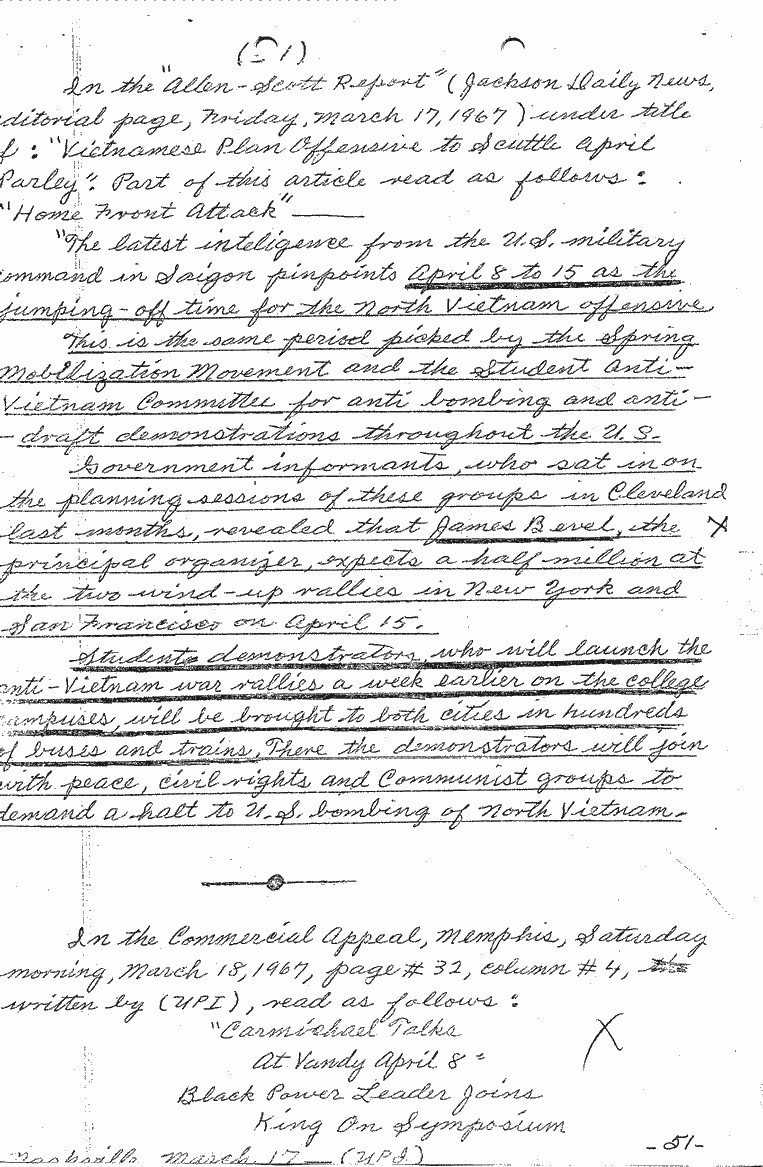 (- 1)
In the "Allen-Scott Report" (Jackson Daily News,
ditorial page, Friday, March 17, 1967) under title
f : "Vietnamese Plan Offensive to Scuttle April
Parley". Part of this article read as follows :
"Home Front Attack" ———
"The latest inteligence from the U.S. military
ommand in Saigon pinpoints April 8 to 15 as the
jumping-off time for the North Vietnam offensive.
This is the same period picked by the Spring
Mobilization Movement and the Student Anti-
Vietnam Committee for anti bombing and anti-
- draft demonstrations throughout the U.S.
Government informants, who sat in on
the planning sessions of these groups in Cleveland
last months, revealed that James Bevel, the X
principal organizer, expects a half million at
the two wind-up rallies in New York and
San Francisco on April 15.
Students demonstrators, who will launch the
anti-Vietnam war rallies a week earlier on the college
ampuses, will be brought to both cities in hundreds
of buses and trains, There the demonstrators will join
with peace, civil rights and Communist groups to
demand a halt to U.S. bombing of North Vietnam.
In the Commercial Appeal, Memphis, Saturday
morning, March 18, 1967, page # 32, column # 4, the
written by (UPI), read as follows :
"Carmichael Talks X
At Vandy April 8 =
Black Power Leader Joins
King On Symposium
-51-
Nashville March 17 — (UPI)